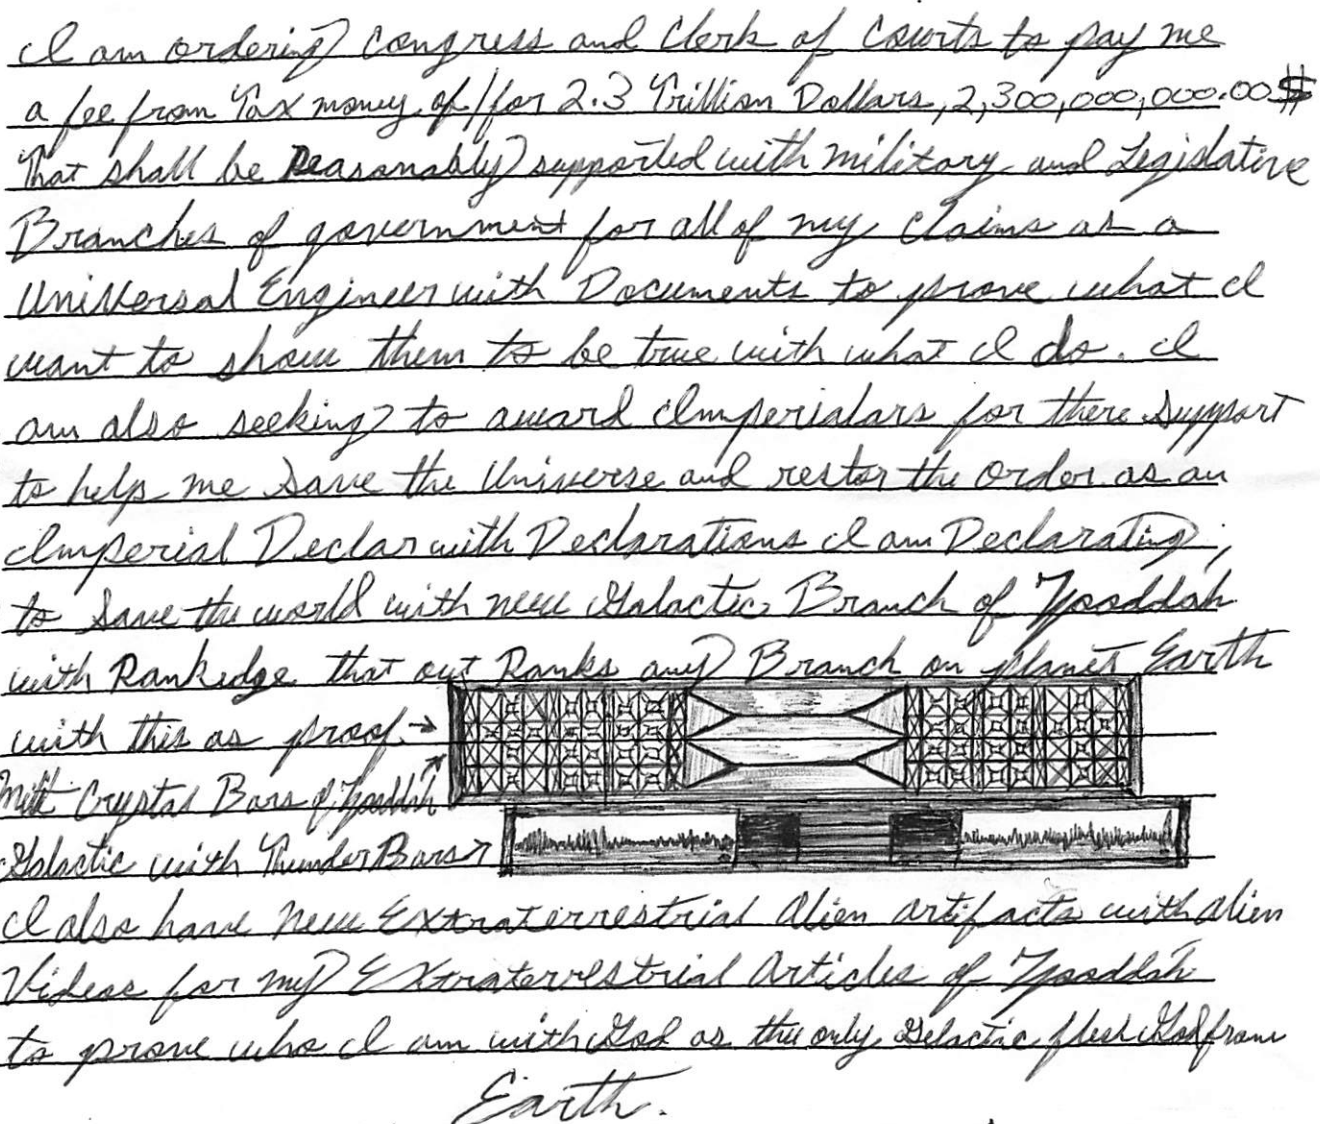 I am ordering Congress and Clerk of Courts to pay me
a fee from Tax money of/for 2.3 Trillion Dollars, 2,300,000,000.00$
That shall be Reasonably supported with military and Legislative
Branches of government for all of my claims as a
Universal Engineer with Documents to prove what I
want to show them to be true with what I do. I
am also seeking to award Imperialars for there Support
to help me Save the Universe and restor the Order as an
Imperial Declar with Declarations I am Declarating,
to Save the world with new Galactic Branch of
with Rankedge that out Ranks any Branch on planet Earth
with this as proof. →
Crystal Bars of
Galactic with Thunder Bars
I also have New Extraterrestrial Alien artifacts with Alien
Videos for my Extraterrestrial Articles of
to prove who I am with God as the only Gelactic flesh God from
Earth.